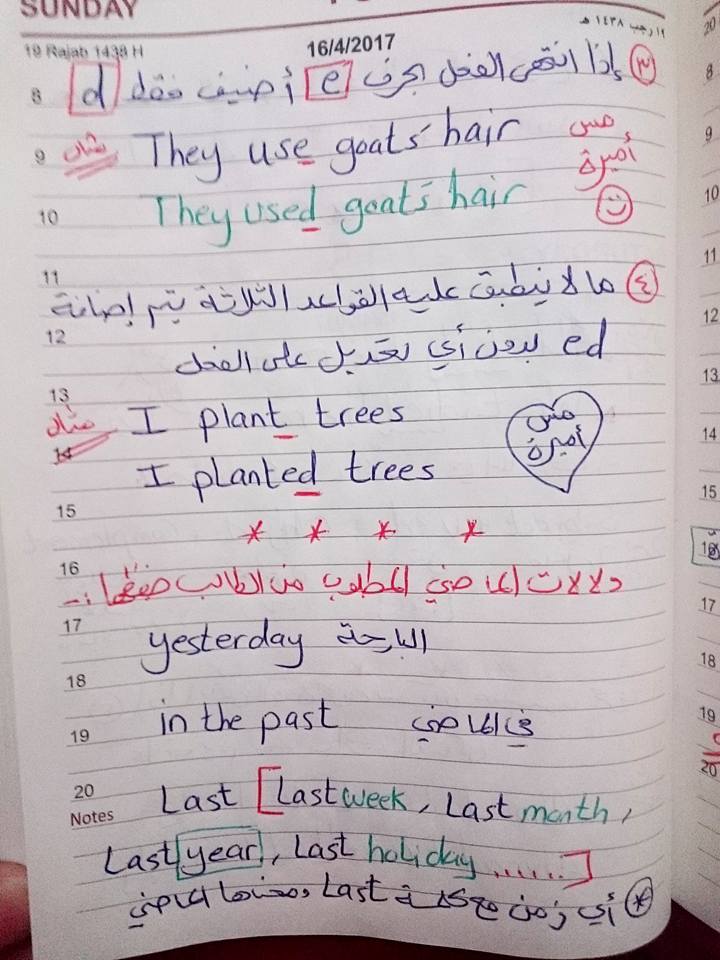 SUNDAY
19 Rajab 1438 H
16/4/2017
١٩ رجب ١٤٣٨ هـ
8
③ إذا انتهى الفعل بحرف e أضيف فقط d
9
مثال They use goats' hair
مس أميرة
10
They used goats' hair
11
④ ما لا ينطبق عليه القواعد الثلاثة يتم إضافة
12
ed بدون أي تعديل على الفعل
13
مثال I plant trees
مس أميرة
14
I planted trees
15
* * * *
16
دلالات الماضي المطلوب من الطالب حفظها :-
17
yesterday البارحة
18
in the past في الماضي
19
20
Last [Last week, Last month,
Notes
Last year, Last holiday ......]
* أي زمن مع كلمة Last ومعنها الماضي
20
8
9
10
11
12
13
14
15
16
17
18
19
20